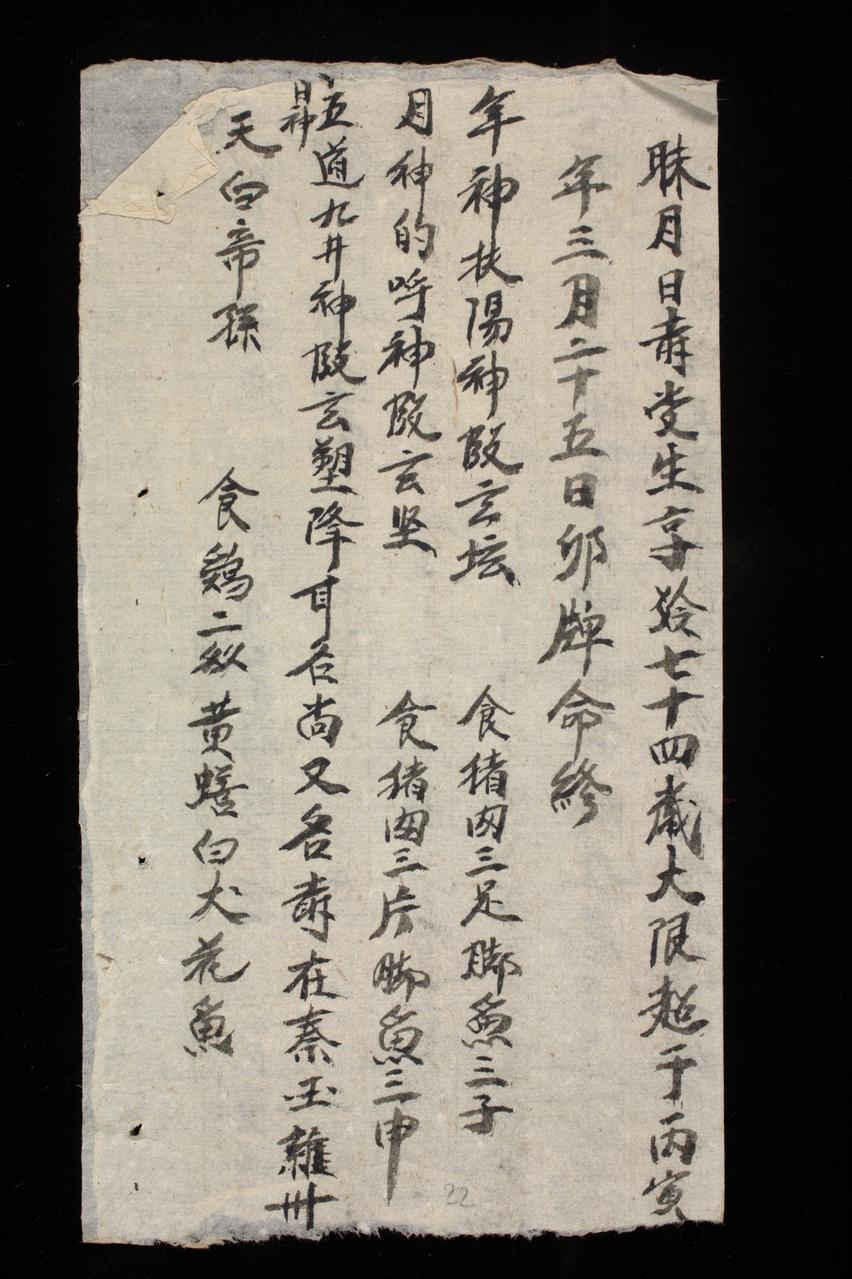 月日壽受生享齡七十四歲大限超于丙寅
年三月二十五日卯牌命終
年神扶陽神殿玄坛 食猪肉三足脚魚三子
月神的呼神殿玄坚 食猪肉三片脚魚三申
日神五道九井神殿玄塑降甘石尚又名壽在秦玉雜卅
天白帝孫 食鷄二 黄蟮白犬花魚
22